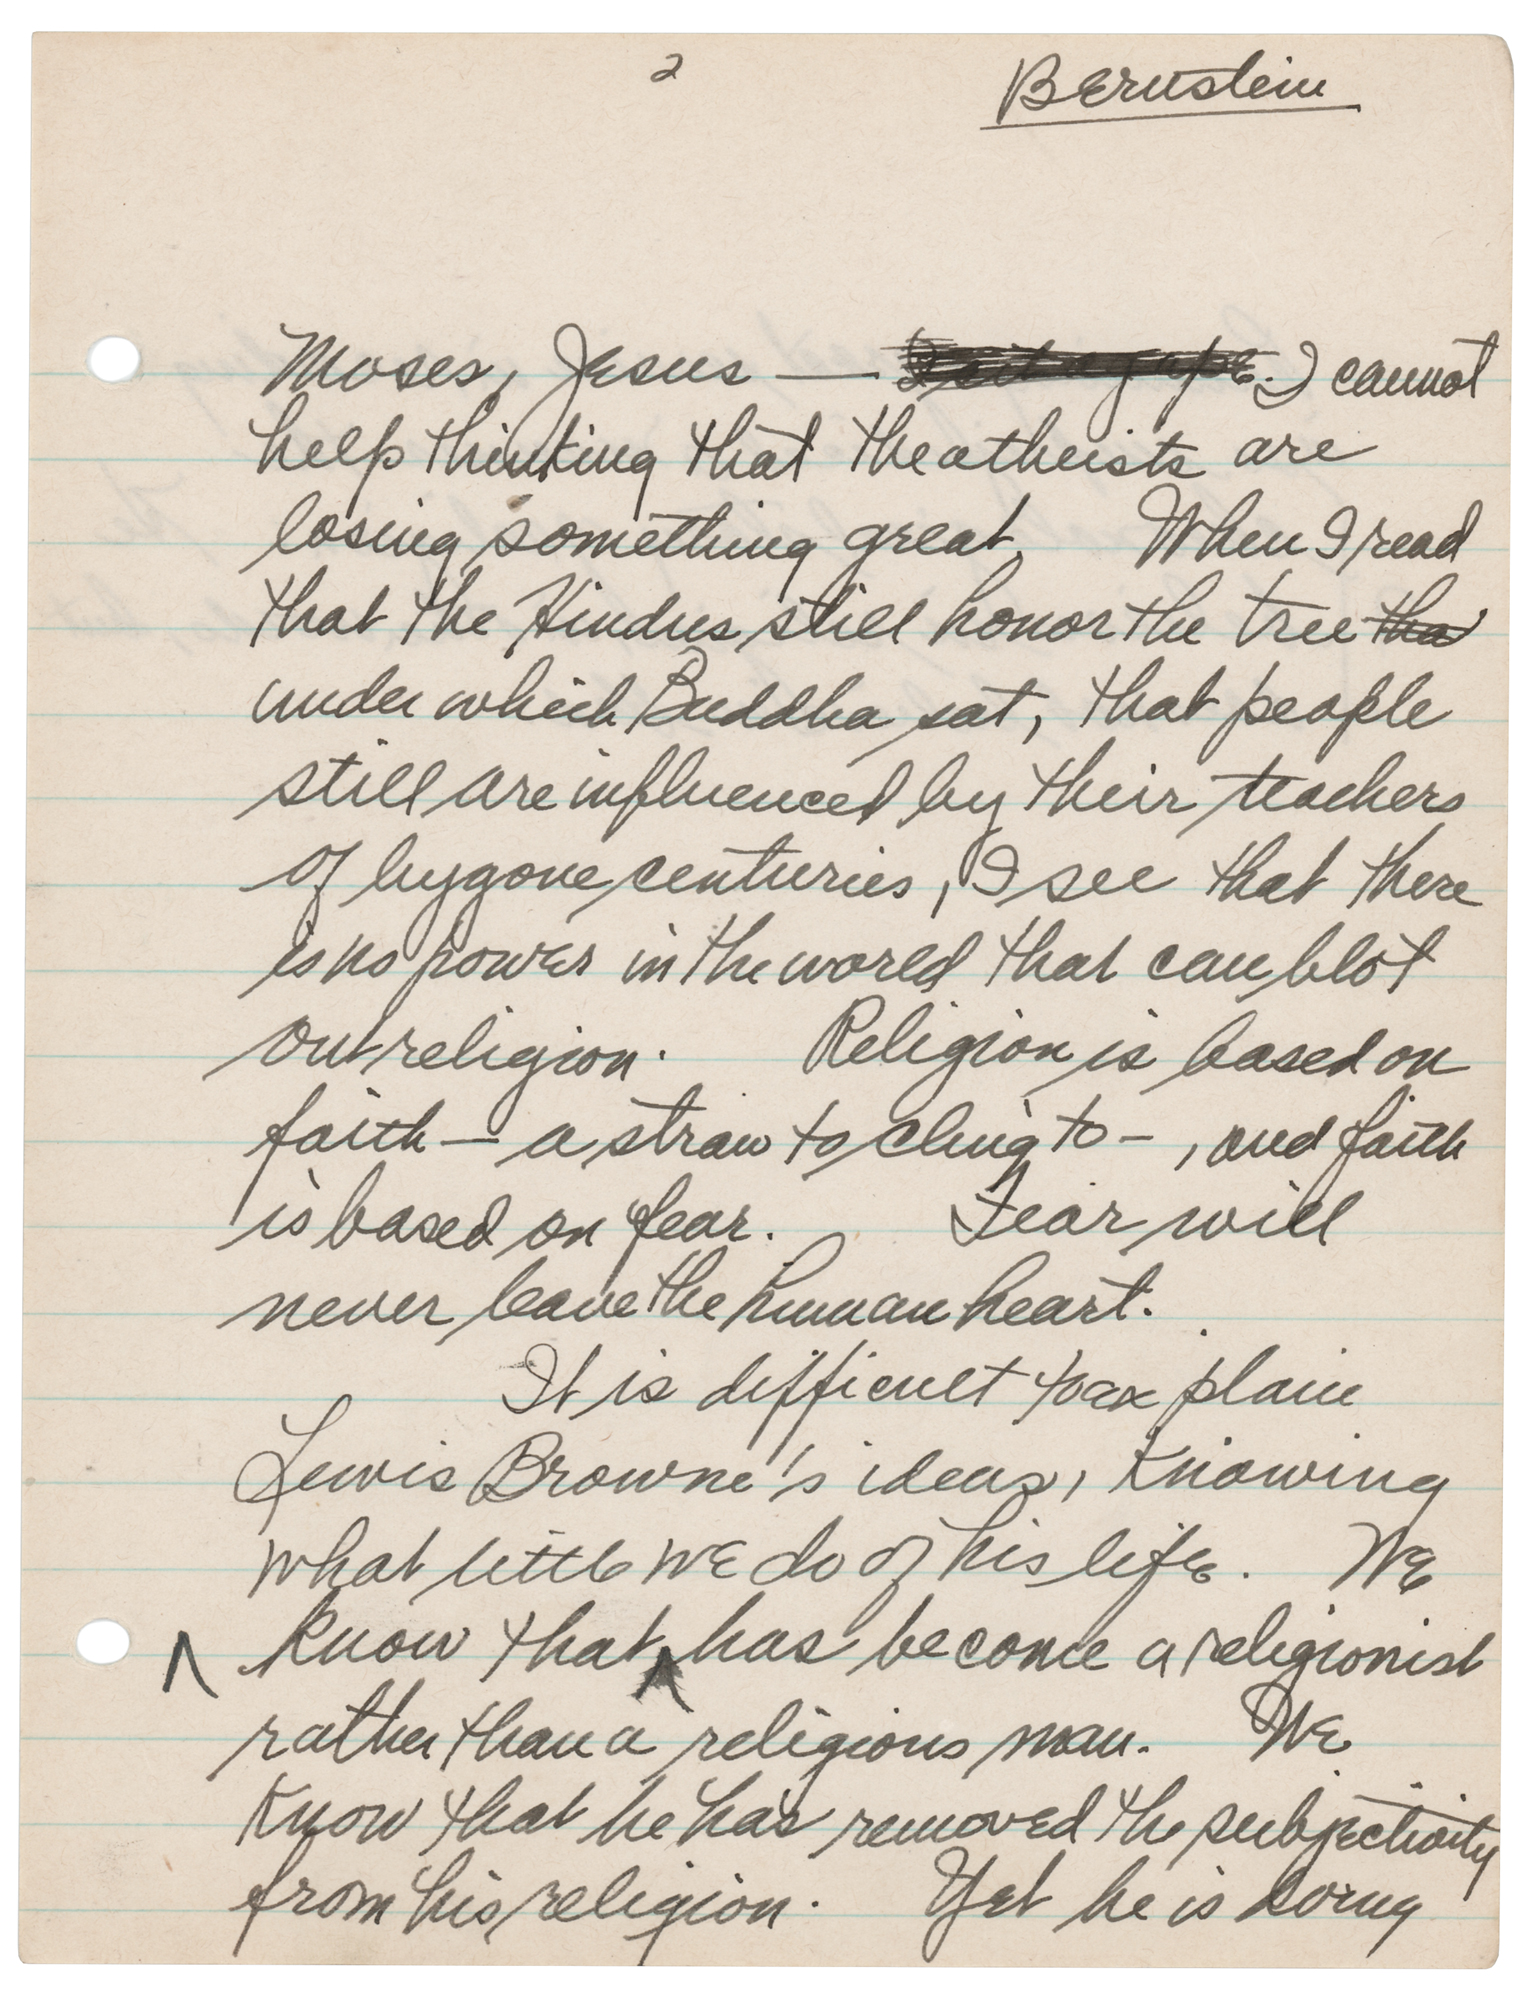 2
Bernstein
Moses, Jesus — I cannot
help thinking that the atheists are
losing something great. When I read
that the Hindus still honor the tree tha
under which Buddha sat, that people
still are influenced by their teachers
of bygone centuries, I see that there
is no power in the world that can blot
out religion. Religion is based on
faith — a straw to cling to — , and faith
is based on fear. Fear will
never leave the human heart.
It is difficult to explain
Lewis Browne's ideas, knowing
what little we do of his life. We
know that has become a religionist
rather than a religious man. We
know that he has removed the subjectivity
from his religion. Yet he is doing